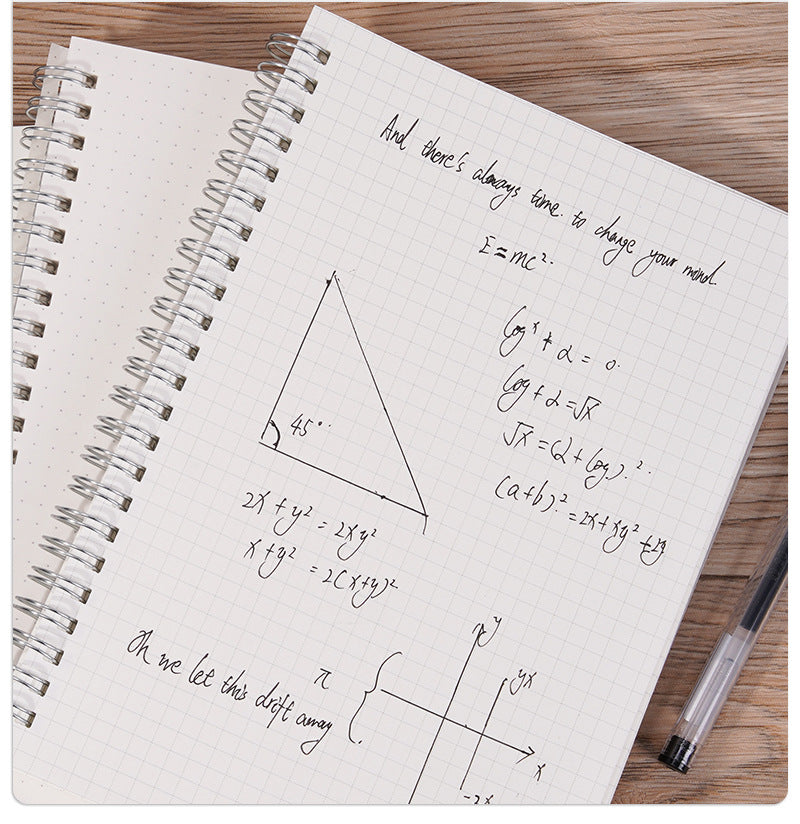 And there's always time. to change your mind
E=mc².
logˣ + 2 = 0.
log + 2 = √x
√x = (2 + log).².
(a+b).² = 2x + xy² + 2y
45°
2x + y² = 2xy²
x + y² = 2(x+y)²
Oh we let this drift away
π
y
yx
x
-2x